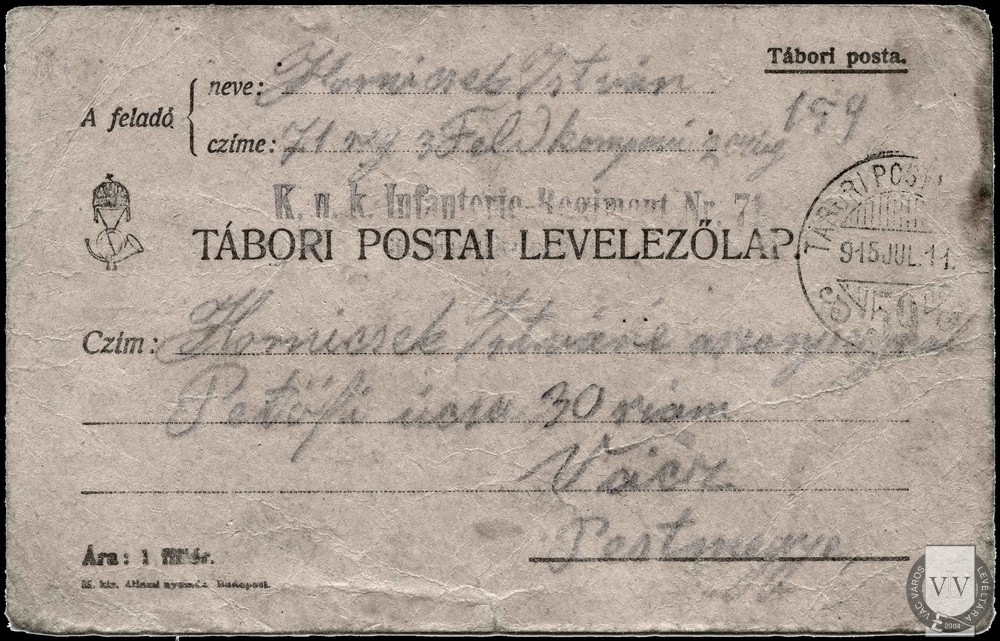 Tábori posta.
A feladó
neve: Hornicsek István
czime: 71 reg 3 Feld komp
159
K. u. k. Infanterie-Regiment Nr. 71
TÁBORI POSTAI LEVELEZŐLAP.
TÁBORI POSTA
915 JUL. 11.
59
Czim: Hornicsek Istváné
Petőfi ucsa 30 szám
Vácz
Pestmegye
Ára: 1 fillér.
M. kir. állami nyomda Budapest.
VÁC VÁROS LEVÉLTÁRA
VVL
2004